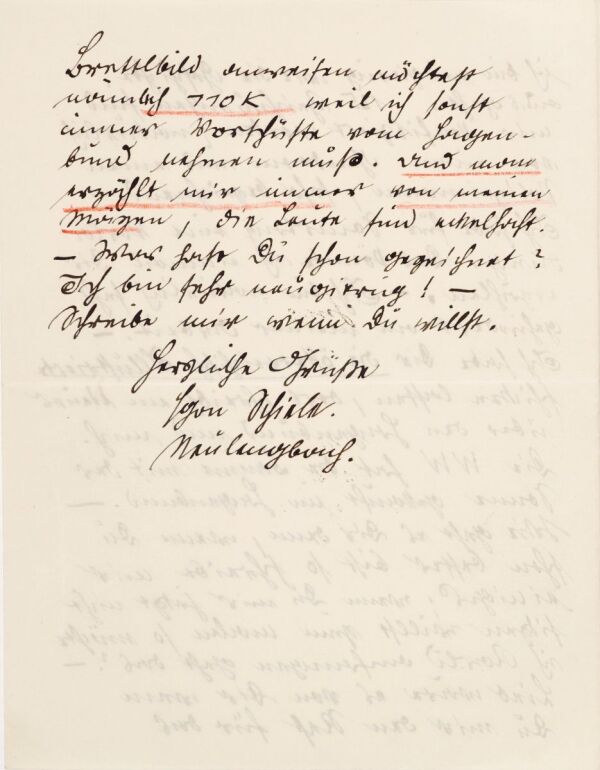 Brettlbild anweisen möchtest
nämlich 110 K weil ich sonst
immer Vorschüsse vom Hagen-
bund nehmen muß. Und man
erzählt mir immer von meinen
Mäzen, die Leute sind ekelhaft.
– Was hast Du schon gezeichnet?
Ich bin sehr neugierig! –
Schreibe mir wenn Du willst.
Herzliche Grüße
Egon Schiele.
Neulengbach.